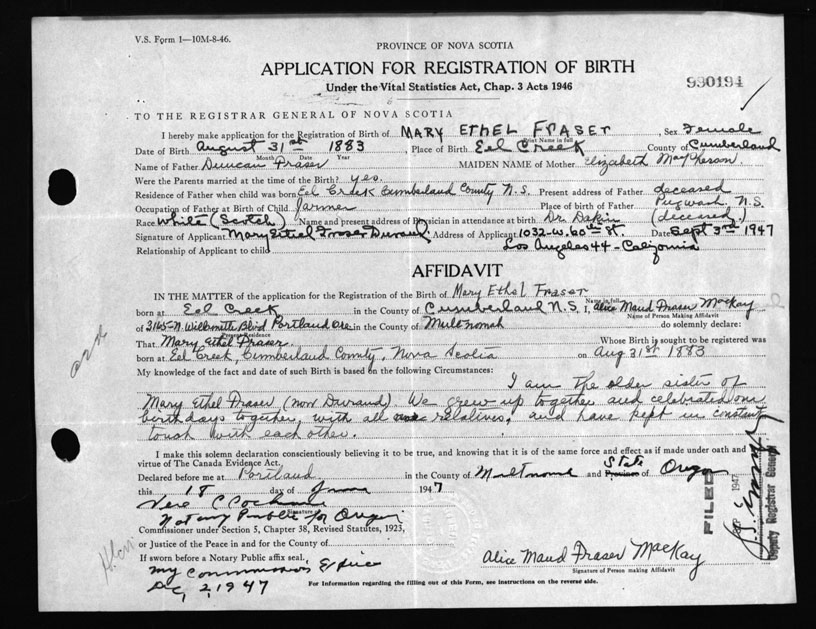 V.S. Form 1—10M-8-46.
PROVINCE OF NOVA SCOTIA
APPLICATION FOR REGISTRATION OF BIRTH
930194
Under the Vital Statistics Act, Chap. 3 Acts 1946
TO THE REGISTRAR GENERAL OF NOVA SCOTIA
I hereby make application for the Registration of Birth of MARY ETHEL FRASER, Sex Female
Print Name in full
Date of Birth August 31st 1883, Place of Birth Eel Creek County of Cumberland
Month Date Year
Name of Father Duncan Fraser MAIDEN NAME of Mother Elizabeth MacPherson
Were the Parents married at time of the Birth? yes.
Residence of Father when child was born Eel Creek Cumberland County N.S. Present address of Father deceased
Occupation of Father at Birth of Child farmer Place of birth of Father Pugwash N.S.
Race White (Scotch) Name and present address of Physician in attendance at birth Dr. Dakin (deceased.)
Signature of Applicant Mary Ethel Fraser Durand Address of Applicant 1032-W. 60th St. Date Sept 3rd 1947
Relationship of Applicant to child Los Angeles 44 - California
AFFIDAVIT
IN THE MATTER of the application for the Registration of Birth of Mary Ethel Fraser
Name in full
born at Eel Creek in the County of Cumberland N.S. I, Alice Maud Fraser MacKay
Name of Person Making Affidavit
of 3165-N. Willamette Blvd Portland Ore. in the County of Multnomah do solemnly declare:
Present Residence
That Mary Ethel Fraser Whose Birth is sought to be registered was
born at Eel Creek, Cumberland County, Nova Scotia on Aug 31st 1883
My knowledge of the fact and date of such Birth is based on the following Circumstances:
I am the older sister of
Mary Ethel Fraser (now Durand). We grew up together and celebrated our
birthdays together, with all relatives, and have kept in constant
touch with each other.
I make this solemn declaration conscientiously believing it to be true, and knowing that it is of the same force and effect as if made under oath and
virtue of The Canada Evidence Act.
Declared before me at Portland in the County of Multnomah and State Province of Oregon
this 18 day of June 1947
Vere C Cochran
Signature
Notary Public for Oregon
Commissioner under Section 5, Chapter 38, Revised Statutes, 1923,
or Justice of the Peace in and for the County of
If sworn before a Notary Public affix seal.
My Commission Expires
Dec, 2, 1947
Alice Maud Fraser MacKay
Signature of Person making Affidavit
For Information regarding the filling out of this Form, see instructions on the reverse side.
FILED
1947
Deputy Registrar General